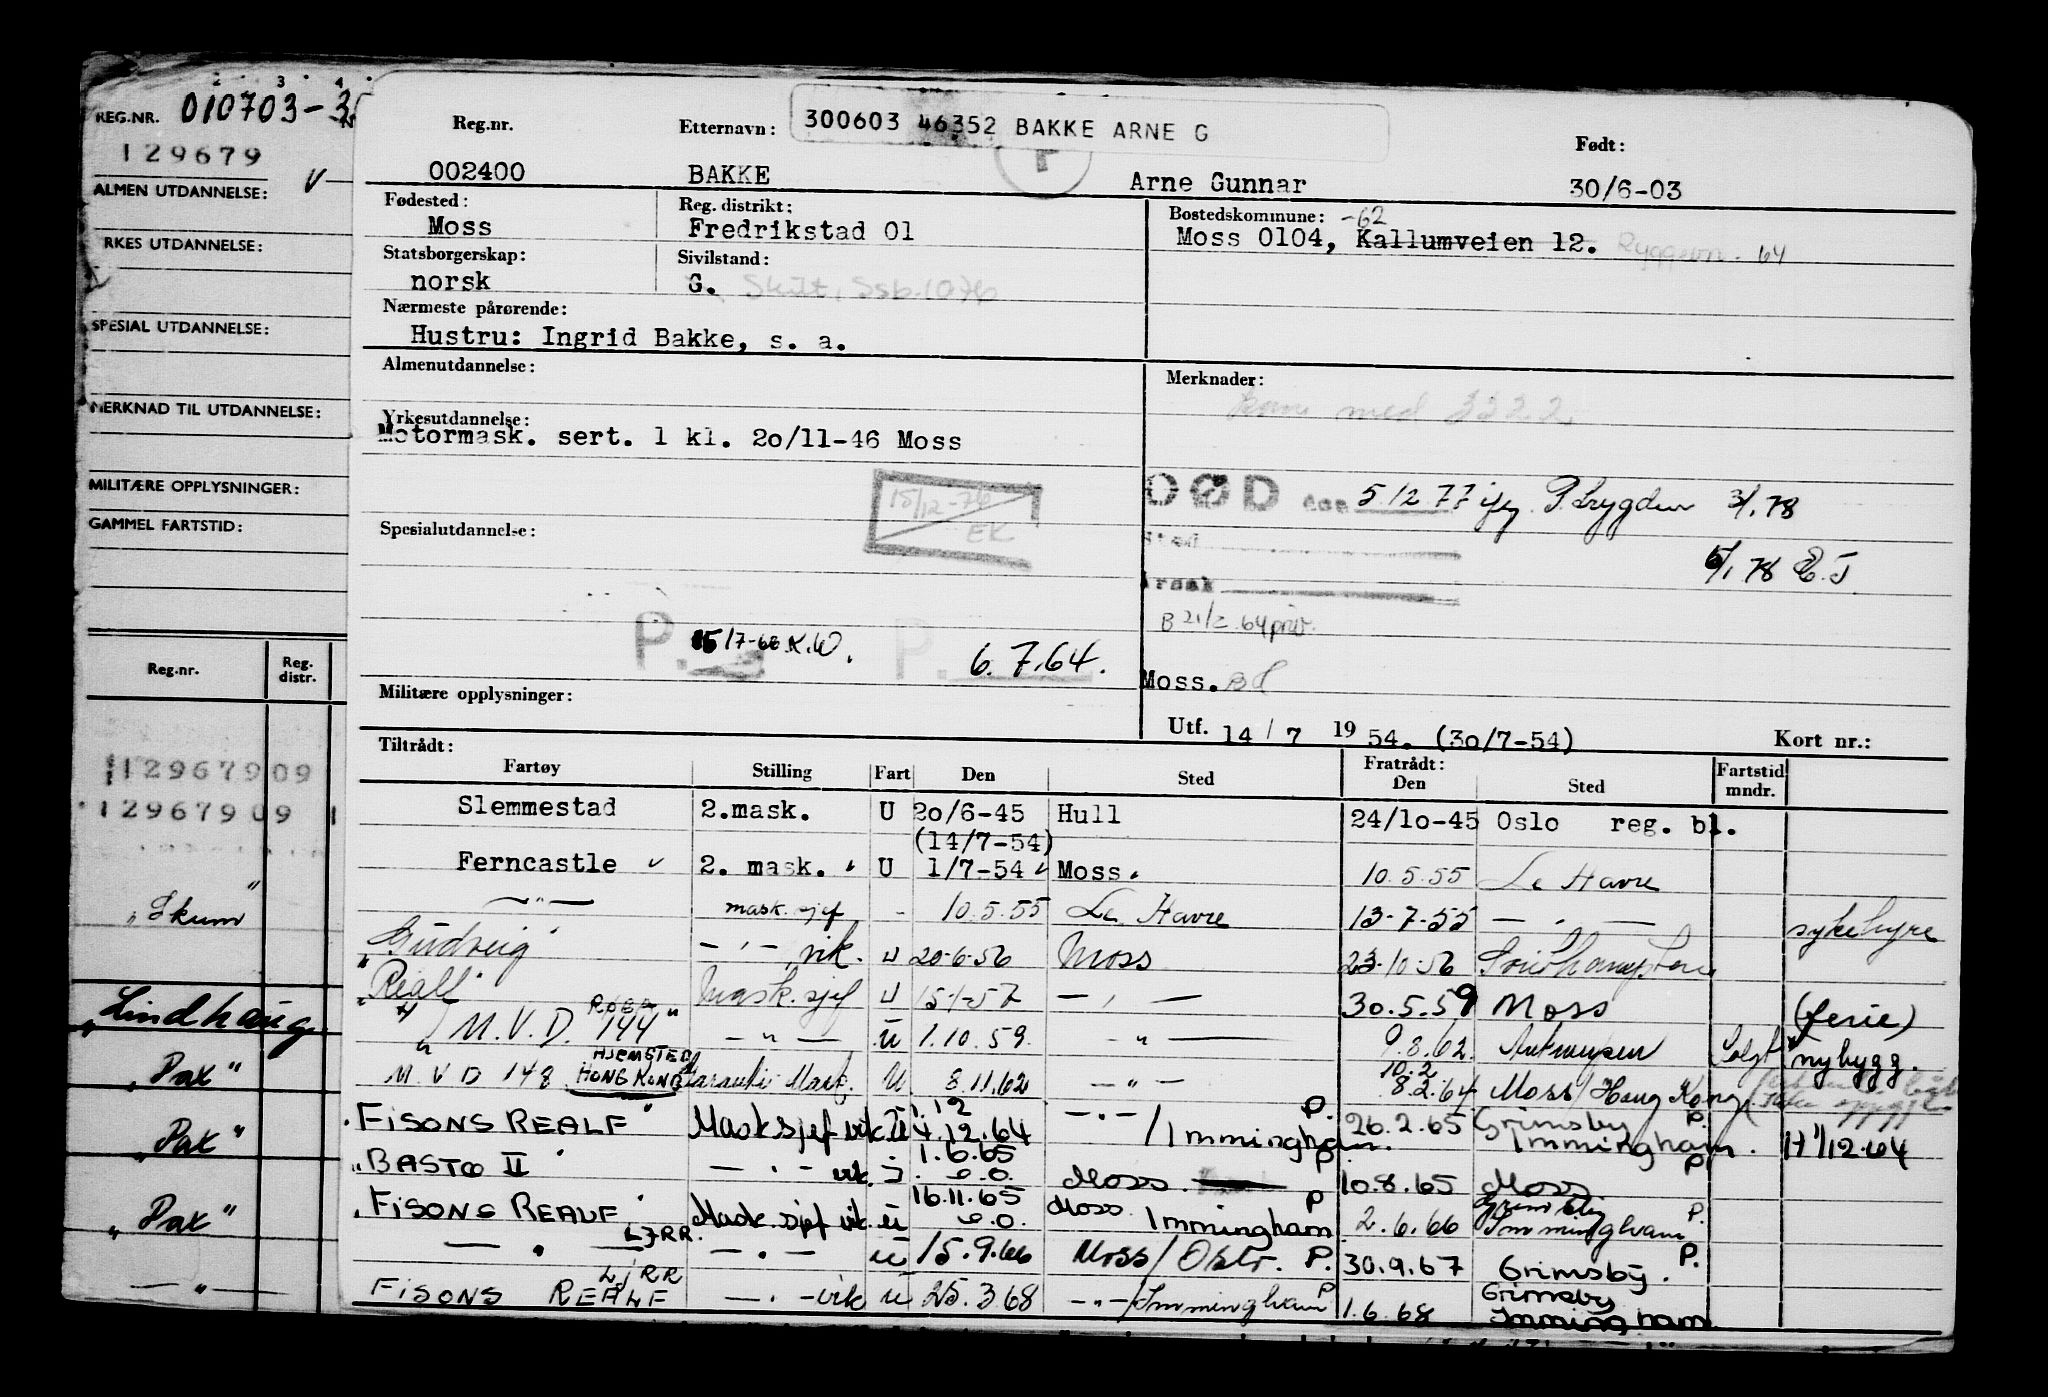 REG.NR. 010703-3
129679
ALMEN UTDANNELSE: V
RKES UTDANNELSE:
SPESIAL UTDANNELSE:
MERKNAD TIL UTDANNELSE:
MILITÆRE OPPLYSNINGER:
GAMMEL FARTSTID:
Reg.nr. Reg. distr.
12967909
12967909 1
"Skum"
"Lindhaug
"Pax"
"Pax"
"Pax"
— " —
300603 46352 BAKKE ARNE G
Reg.nr. Etternavn: Født:
002400 BAKKE Arne Gunnar 30/6-03
Fødested: Reg. distrikt: Bostedskommune: -62
Moss Fredrikstad 01 Moss 0104, Kallumveien 12. 64
Statsborgerskap: Sivilstand:
norsk G.
Nærmeste pårørende:
Hustru: Ingrid Bakke, s. a.
Almenutdannelse: Merknader:
kom med 3222
Yrkesutdannelse:
Motormask. sert. 1 kl. 20/11-46 Moss
15/12-76 EK
DØD den 5/2 77 3/1 78
Sted
6/1 78
Årsak
Spesialutdannelse:
B 21/2 64 priv.
P. 15/7-68 K.W. P. 6.7.64.
Moss.
Militære opplysninger:
Utf. 14 / 7 19 54. (30/7-54) Kort nr.:
Tiltrådt: Fratrådt:
Fartøy Stilling Fart Den Sted Den Sted Fartstid mndr.
Slemmestad 2.mask. U 20/6-45 Hull 24/10-45 Oslo reg. bl.
(14/7-54)
Ferncastle 2. mask. U 1/7-54 Moss. 10.5.55 Le Havre
— " — mask. sjef - 10.5.55 Le Havre 13-7-55 — " — sykehyre
"Gudveig" — " — vik. U 20-6-56 Moss 23-10-56 Southampton
"Realf" Mask. sjef U 15-1-57 — " — 30.5.59 Moss (ferie)
" M.V.D. 144" — " — U 1.10.59. — " — 9.8.62. Antwerpen Solgt nybygg.
HJEMSTED 10.2
M V D 148 HONG KONG Garanti Mask. U 8.11.62 — " — 8.2.64 Moss/Hong Kong
1.12
FISONS REALF" Masksjef vik. U 4.12.64 — " — / Immingham. P. 26.2.65 Grimsby P. Immingham. 1/12.64
1.6.65
"BASTØ II" — " — vik. i d.o. Moss. P 10.8.65 Moss P
16.11.65
"FISONS REALF" Mask. sjef vik. U d.o. Moss Immingham P 2.6.66 Grimsby Immingham P.
— " — — " — U 15.9.66 Moss/Ostr. P. 30.9.67 Grimsby. P.
FISONS REALF — " — vik U 25.3.68 — " — /Immingham P 1.6.68 Grimsby Immingham